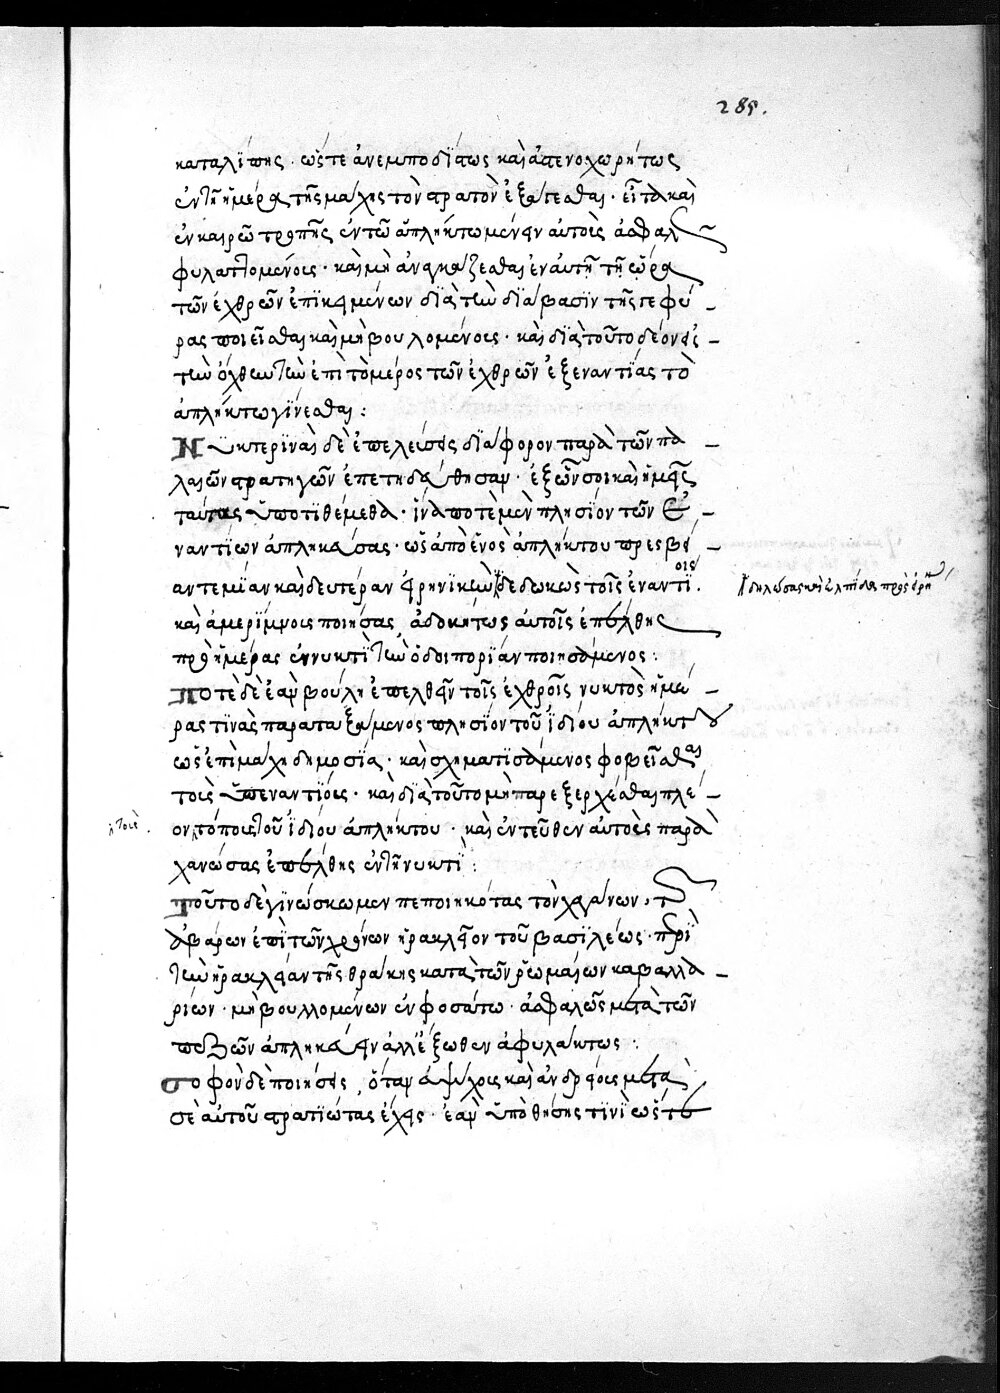 285.
καταλίπης · ὥστε ἀνεμποδίστως καὶ ἀστενοχωρήτως
ἐν τῆ ἡμέρα τῆς μάχης τὸν στρατὸν ἐξάγεσθαι · εἶτα καὶ
ἐν καιρῶ τροπῆς ἐν τῶ ἀπλήκτω μένειν αὐτοὺς ἀσφαλῶς
φυλαττομένοις · καὶ μὴ ἀναγκάζεσθαι ἐν αὐτῆ τῆ ὥρα
τῶν ἐχθρῶν ἐπικειμένων διὰ τὴν διάβασιν τῆς γεφύ
ρας ποιεῖσθαι καὶ μὴ βουλομένοις · καὶ διὰ τοῦτο δέον εἰς
τὴν ὄχθην τὴν ἐπὶ τὸ μέρος τῶν ἐχθρῶν ἐξεναντίας τὸ
ἀπλήκτω γίνεσθαι :
Νυκτερινὰς δὲ ἐπελεύσεις διαφόρον παρὰ τῶν πα
λαιῶν στρατηγῶν ἐπετηδεύθησαν · ἐξ ὧν σοι καὶ ἡμεῖς
ταύτας ὑποτιθέμεθα · ἵνα ποτὲ μὲν πλησίον τῶν ἐ
ναντίων ἀπληκεύσας · ὡς ἀπὸ ἑνὸς ἀπλήκτου πρεσβεί
αν τε μίαν καὶ δευτέραν εἰρηνικὴν δεδωκὼς τοῖς ἐναντίοις ·
δηλώσας καὶ ἐλπίδας πρὸς εἰρήνην
καὶ ἀμερίμνοις ποιήσας, ἀδοκήτως αὐτοῖς ἐπέλθης
πρὸ ἡμέρας ἐν νυκτὶ τὴν ὁδοιπορίαν ποιησάμενος :
ποτὲ δὲ ἐὰν βούλη ἐπελθεῖν τοῖς ἐχθροῖς νυκτὸς ἡμέ
ρας τινὰς παραταξάμενος πλησίον τοῦ ἰδίου ἀπλήκτου
ὡς ἐπὶ μάχη δημοσία · καὶ σχηματισάμενος φοβεῖσθαι
τοὺς ὑπεναντίους · καὶ διὰ τοῦτο μὴ παρεξέρχεσθαι πλέ
ον τόποις τοῦ ἰδίου ἀπλήκτου · καὶ ἐντεῦθεν αὐτοὺς παρα
χανώσας ἐπέλθης ἐν τῆ νυκτί :
Τοῦτο δὲ γινώσκωμεν πεποιηκότας τὸν χαγάνον, τ
ἀβάρων ἐπὶ τῶν χρόνων ἡράκλειον τοῦ βασιλέως · περὶ
τὴν ἡράκλειαν τῆς θράκης κατὰ τῶν ῥωμαίων καβαλλα
ρίων · μὴ βουλλομένων ἐν φοσάτω · ἀσφαλῶς μετὰ τῶν
πεζῶν ἀπληκεύειν ἀλλ' ἔξωθεν ἀφυλάκτως :
σοφὸν δὲ ποιήσεις, ὅταν εὐψύχοις καὶ ἀνδρείοις μετὰ
σὲ αὐτοῦ στρατιώτας ἔχεις · ἐὰν ὑποθήσης τινὶ ὥστε